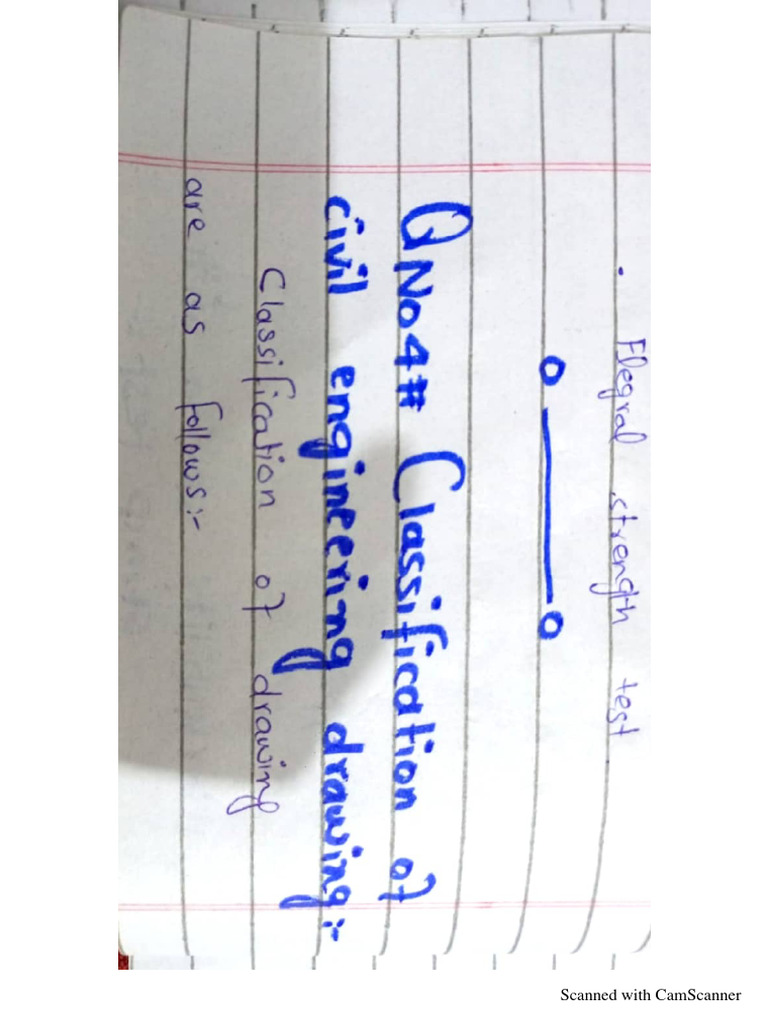 . Flegral strength test
QNo4# Classification of
civil engineering drawing:-
Classification of drawing
are as follows:-
Scanned with CamScanner